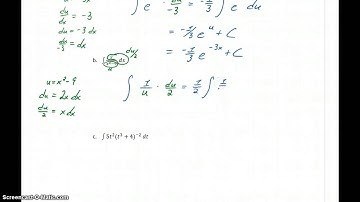 du/dx = -3
∫ e^u du/-3 = -1/3 ∫ e^u du
du = -3 dx
du/-3 = dx
= -1/3 e^u + C
= -1/3 e^-3x + C
b.
du/2
u
u = x² - 9
du = 2x dx
du/2 = x dx
∫ 1/u · du/2 = 1/2 ∫ 1/
c. ∫ 5t²(t³ + 4)⁻² dt
Screencast-O-Matic.com